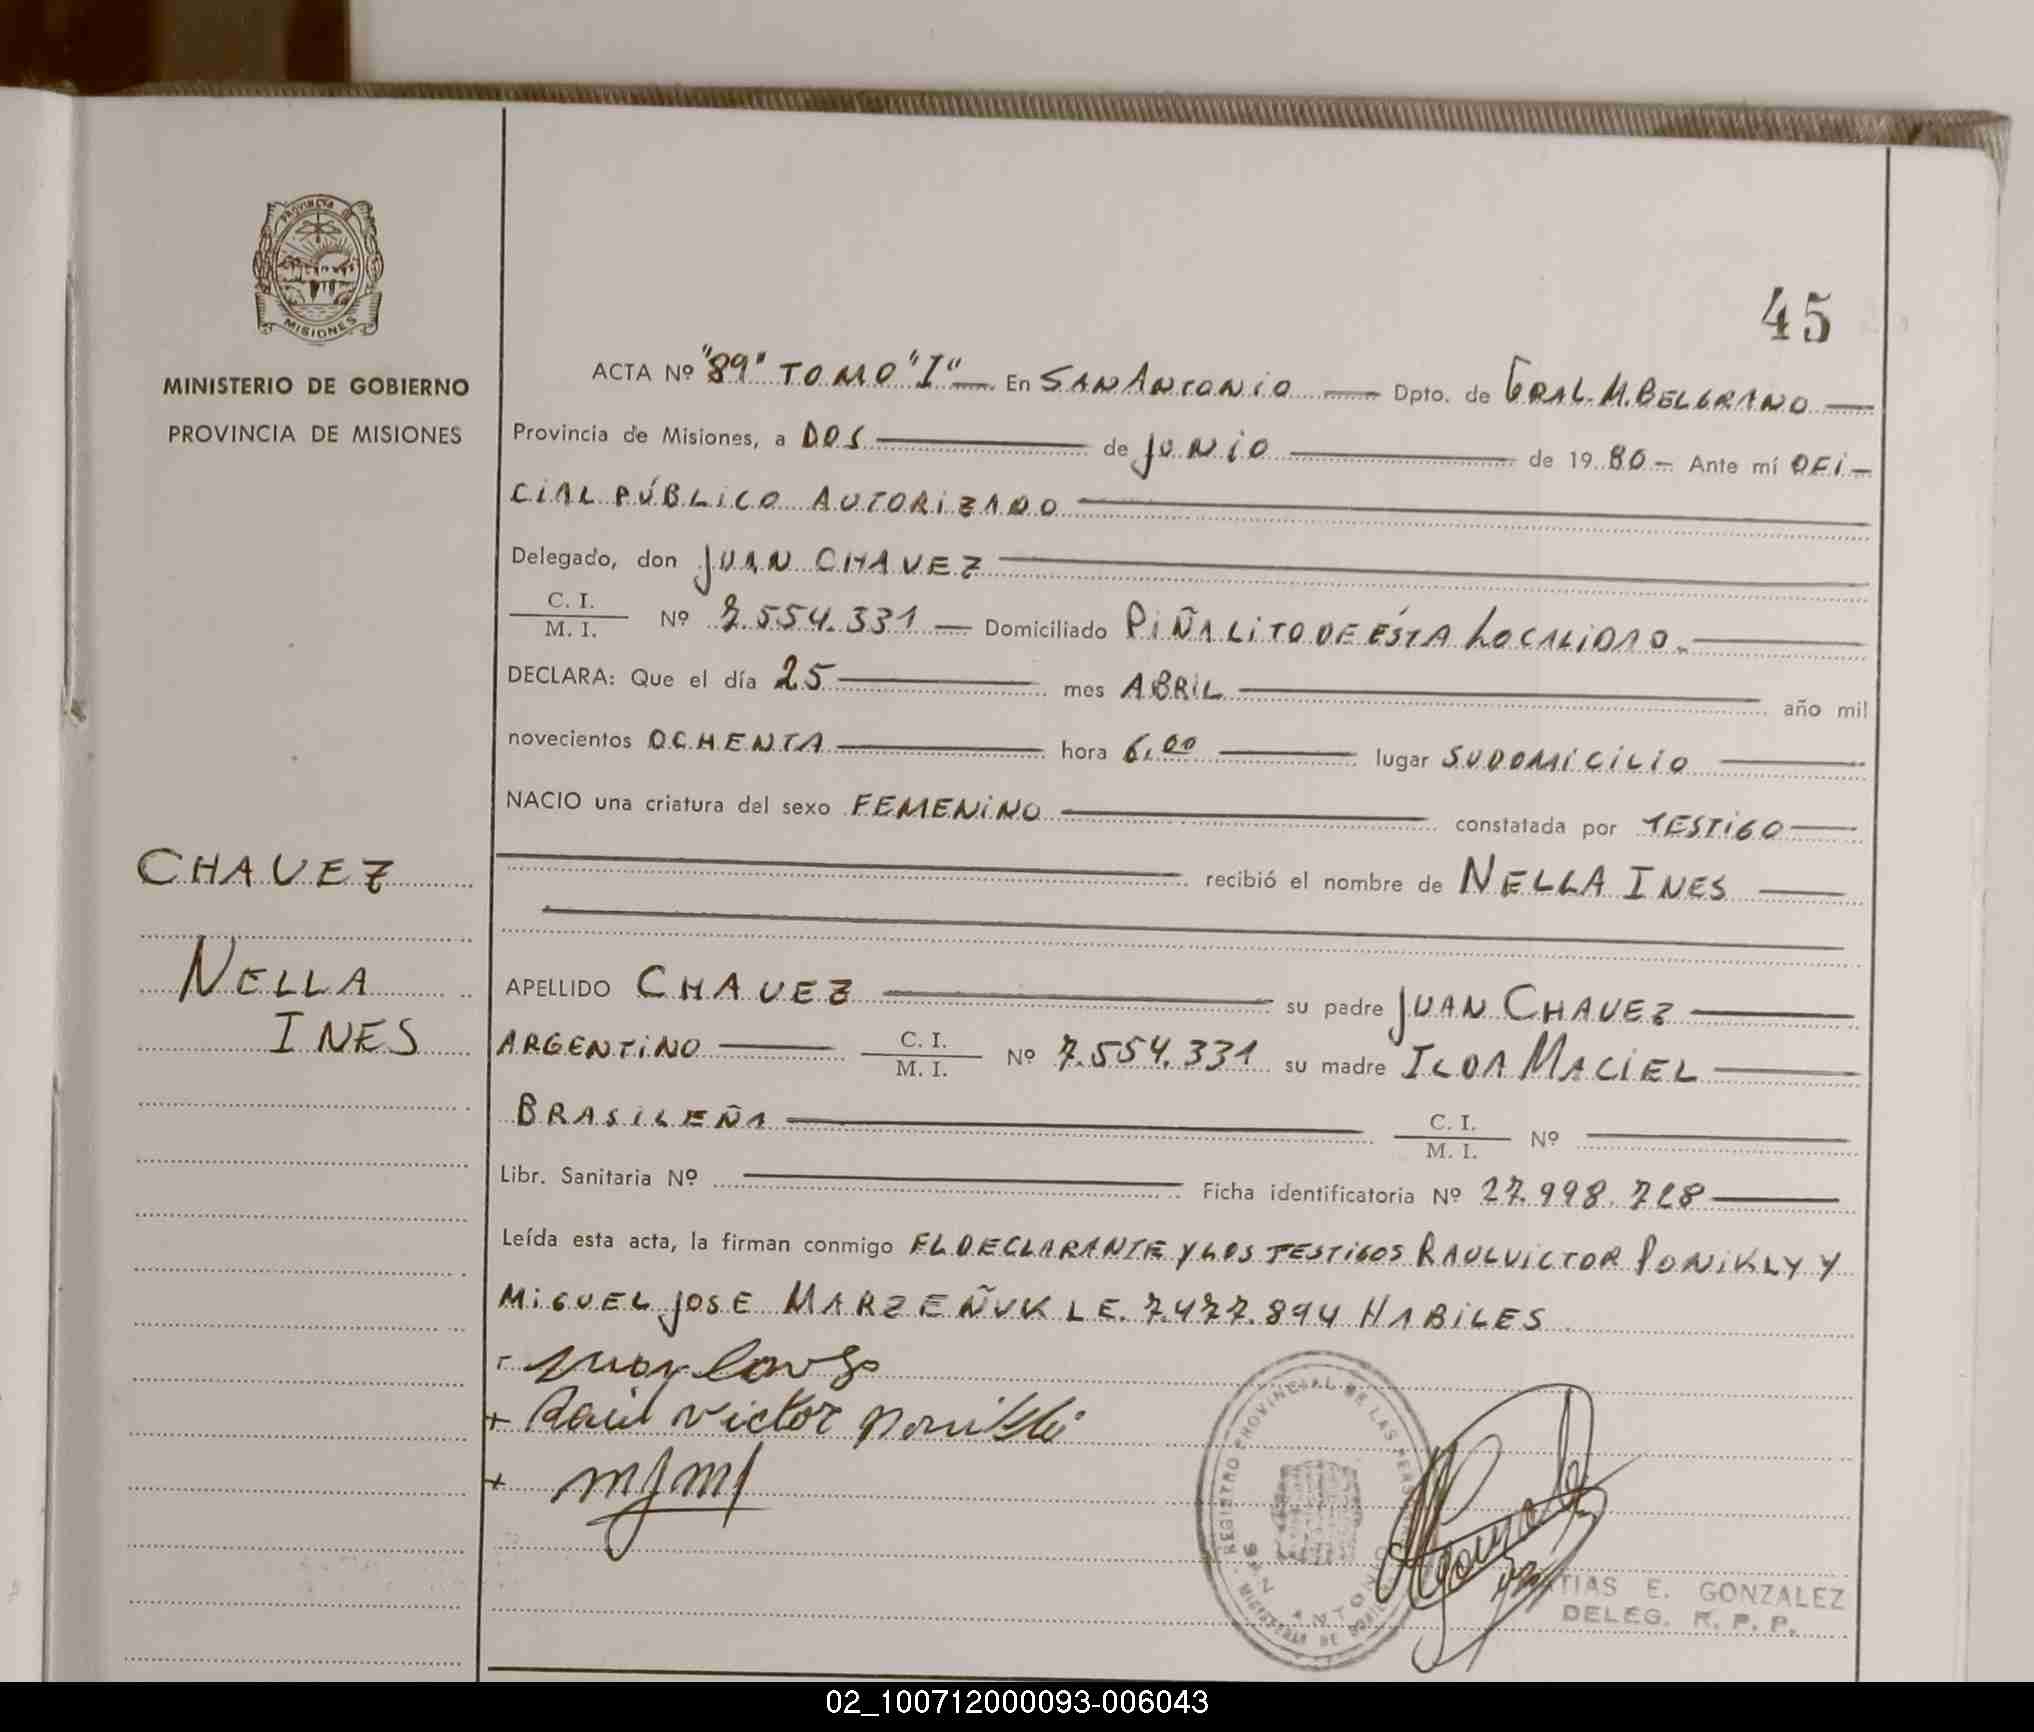 PROVINCIA DE
MISIONES
MINISTERIO DE GOBIERNO
PROVINCIA DE MISIONES
45
ACTA Nº "89" TOMO "I" En SAN ANTONIO Dpto. de GRAL. M. BELGRANO
Provincia de Misiones, a DOS de JUNIO de 19 80 - Ante mí OFI-
CIAL PÚBLICO AUTORIZADO
Delegado, don JUAN CHAVEZ
C. I.
M. I. Nº 7.554.331 Domiciliado PIÑALITO DE ÉSTA LOCALIDAD.
DECLARA: Que el día 25 mes ABRIL año mil
novecientos OCHENTA hora 6,00 lugar SU DOMICILIO
NACIO una criatura del sexo FEMENINO constatada por TESTIGO
recibió el nombre de NELLA INES
CHAVEZ
NELLA
INES
APELLIDO CHAVEZ su padre JUAN CHAVEZ
ARGENTINO C. I.
M. I. Nº 7.554.331 su madre ILDA MACIEL
BRASILEÑA C. I.
M. I. Nº
Libr. Sanitaria Nº Ficha identificatoria Nº 27.998.728
Leída esta acta, la firman conmigo EL DECLARANTE Y LOS TESTIGOS RAUL VICTOR PONIKLY Y
MIGUEL JOSE MARZEÑUK L E. 7.477.894 HABILES
+ Raúl victor
+
REGISTRO PROVINCIAL DE LAS PERSONAS
SAN ANTONIO
MINISTERIO DE GOBIERNO
E. GONZALEZ
DELEG. R. P. P.
02_100712000093-006043